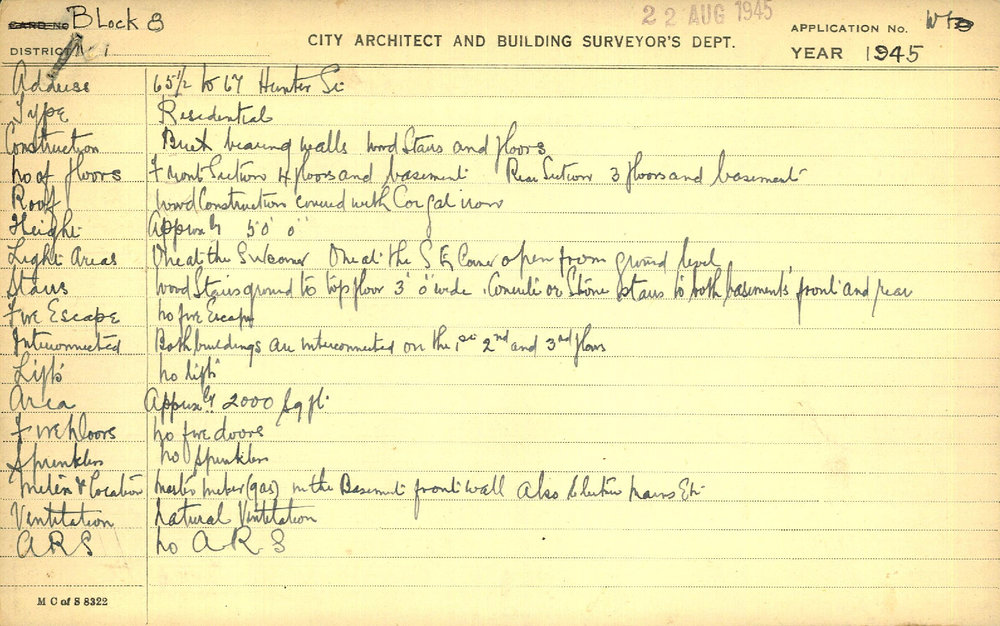 CARD NO. Block 8
22 AUG 1945
APPLICATION NO.
DISTRICT
CITY ARCHITECT AND BUILDING SURVEYOR'S DEPT.
YEAR 1945
Address 65½ to 67 Hunter St
Type Residential
Construction Brick bearing walls wood Stairs and floors
no of floors Front Section 4 floors and basement Rear Section 3 floors and basement
Roof wood Construction covered with Cor gal iron
Height Approxly 50' 0"
Light Areas One at the SW corner One at the S E Corner open from ground level
Stairs wood Stairs ground to top floor 3' 0" wide. Concrete or Stone stairs to both basements front and rear
Fire Escape no fire Escape
Interconnected Both buildings are interconnected on the 1st 2nd and 3rd floors
Lifts no lifts
Area Approxly 2000 sq ft.
Fire Doors no fire doors
Sprinklers no Sprinklers
Meters & Location Master meter (gas) in the Basement front wall also Electric mains Etc
Ventilation natural Ventilation
A R S no A R S
M C of S 8322